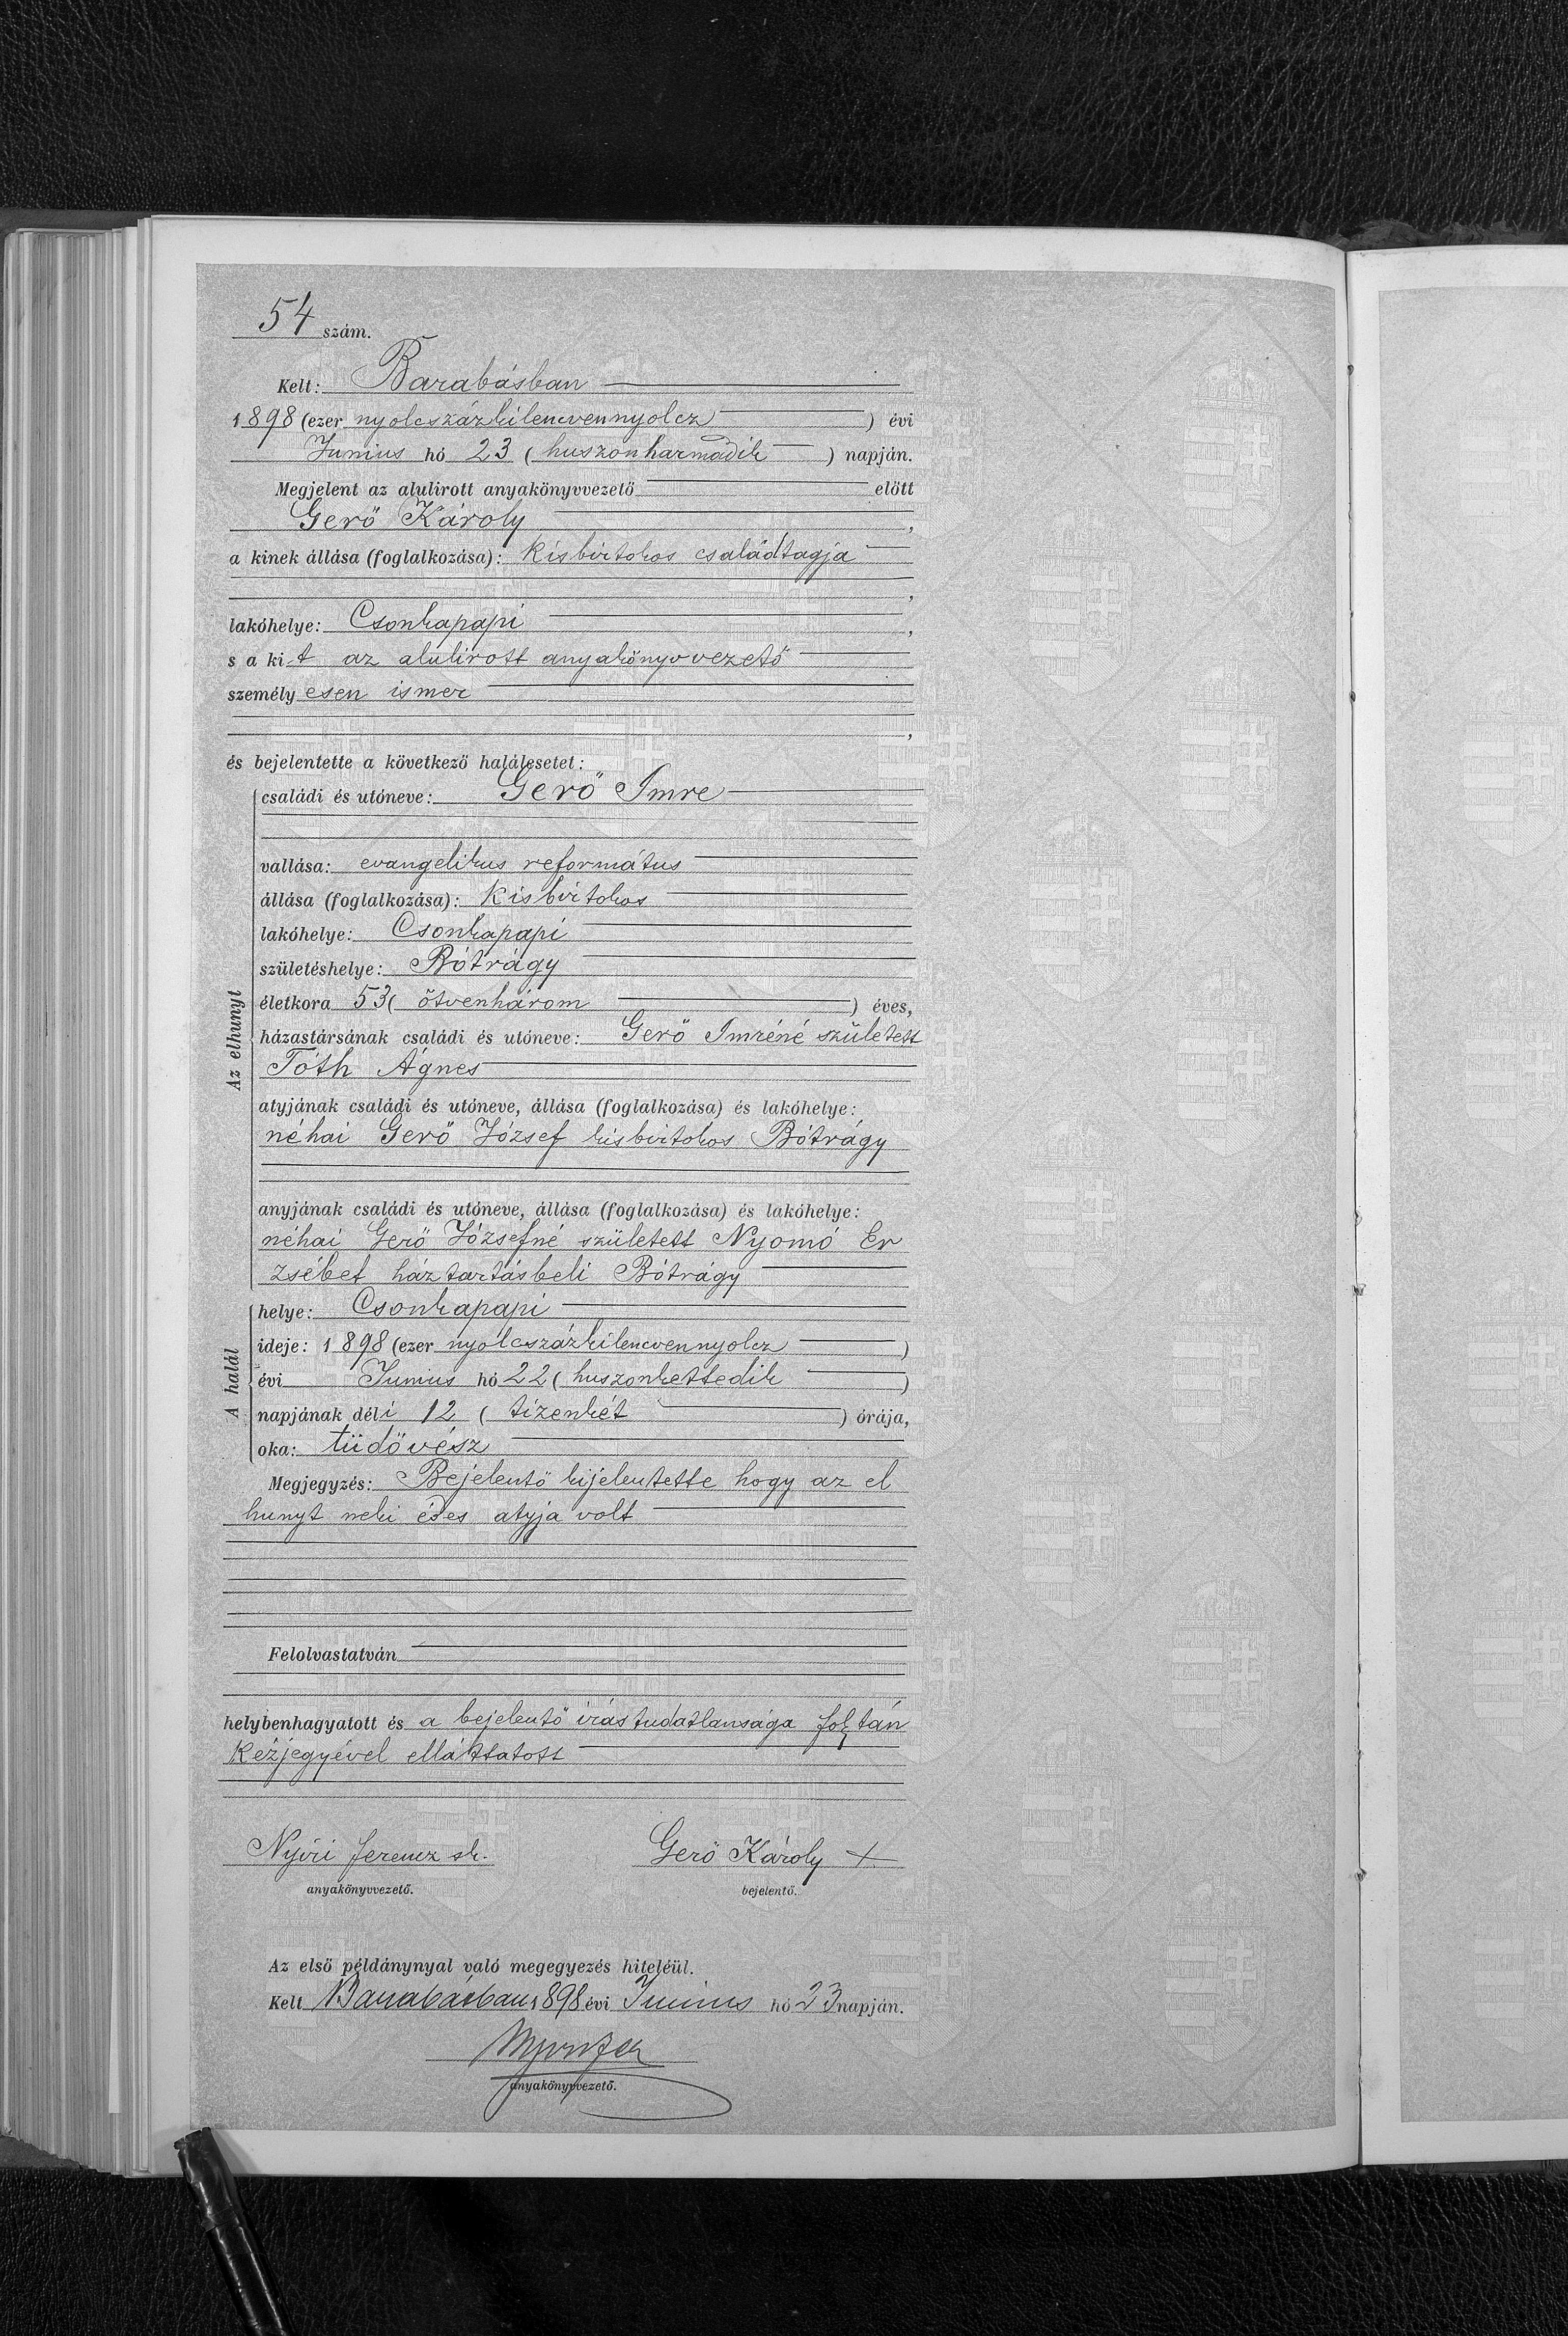 54 szám.
Kelt: Barabásban
1898 (ezer nyolcszázkilenczvennyolcz) évi
Junius hó 23 (huszonharmadik) napján.
Megjelent az alulirott anyakönyvvezető előtt
Gerő Károly,
a kinek állása (foglalkozása): kisbirtokos családtagja
,
lakóhelye: Csonkapapi,
s a kit az alulirott anyakönyvvezető
személyesen ismer
,
és bejelentette a következő halálesetet:
Az elhunyt
családi és utóneve: Gerő Imre
vallása: evangelikus református
állása (foglalkozása): kisbirtokos
lakóhelye: Csonkapapi
születéshelye: Bótrágy
életkora 53 (ötvenhárom) éves,
házastársának családi és utóneve: Gerő Imréné született
Tóth Ágnes
atyjának családi és utóneve, állása (foglalkozása) és lakóhelye:
néhai Gerő József kisbirtokos Bótrágy
anyjának családi és utóneve, állása (foglalkozása) és lakóhelye:
néhai Gerő Józsefné született Nyomó Er
zsébet háztartásbeli Bótrágy
A halál
helye: Csonkapapi
ideje: 1898 (ezer nyolcszázkilenczvennyolcz)
évi Junius hó 22 (huszonkettedik)
napjának déli 12 (tizenkét) órája,
oka: tüdővész
Megjegyzés: Bejelentő kijelentette hogy az el
hunyt neki édes atyja volt
Felolvastatván
helybenhagyatott és a bejelentő irástudatlansága folytán
kézjegyével elláttatott
Nyiri Ferencz sk. Gerő Károly +
anyakönyvvezető. bejelentő.
Az első példánynyal való megegyezés hiteléül.
Kelt Barabásban 1898 évi Junius hó 23 napján.
anyakönyvvezető.